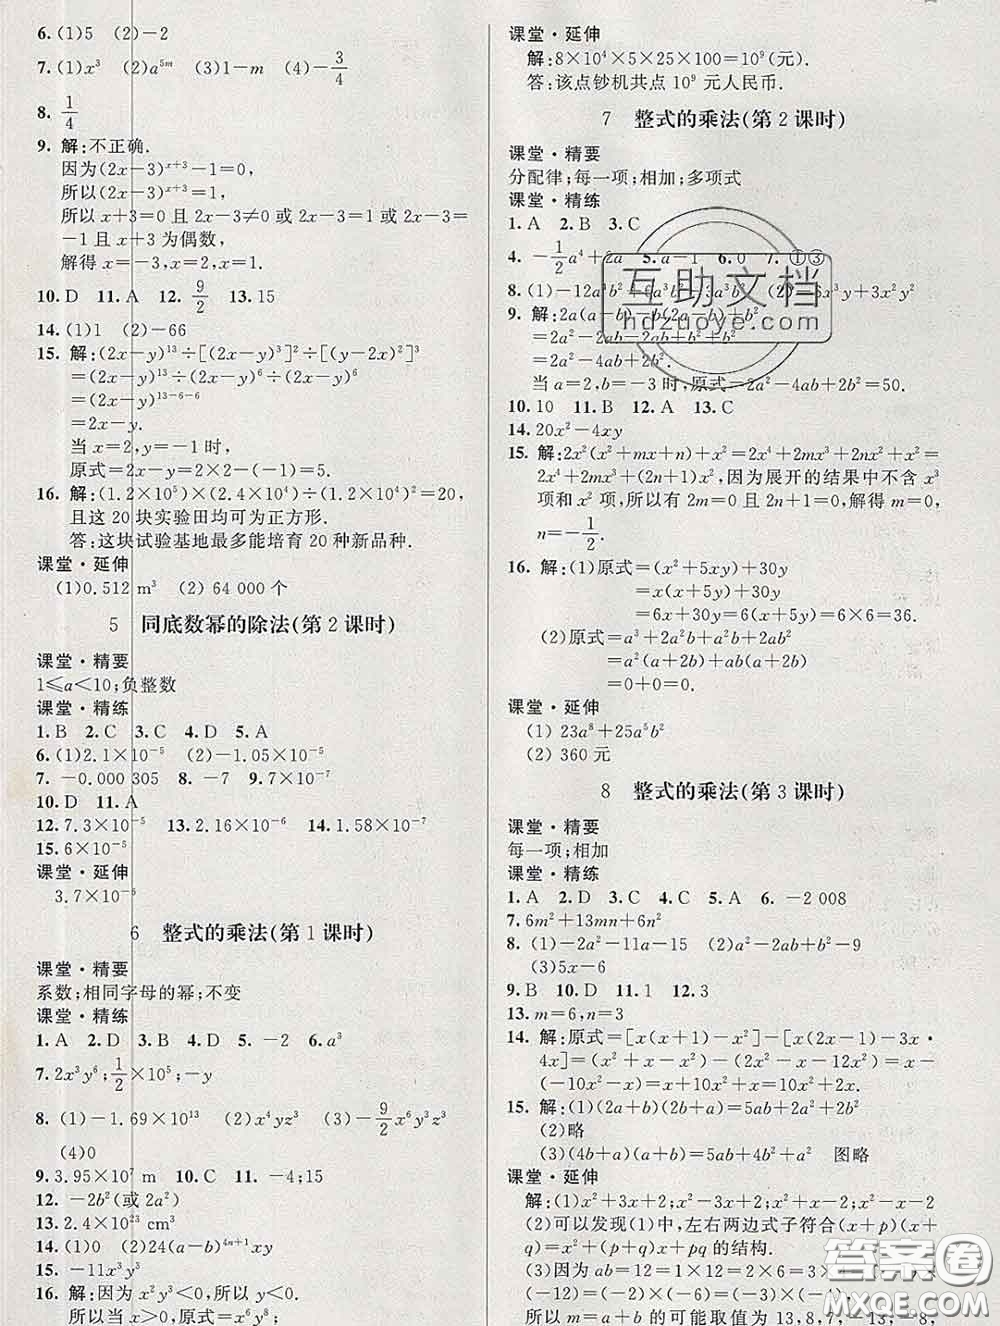 6. (1)5 (2)−2
7. (1)x³ (2)a⁵ᵐ (3)1−m (4)−3/4
8. 1/4
9. 解:不正确.
因为(2x−3)ˣ⁺³−1=0,
所以(2x−3)ˣ⁺³=1,
所以 x+3=0 且 2x−3≠0 或 2x−3=1 或 2x−3=
−1 且 x+3 为偶数,
解得 x=−3,x=2,x=1.
10. D 11. A 12. 9/2 13. 15
14. (1)1 (2)−66
15. 解:(2x−y)¹³÷[(2x−y)³]²÷[(y−2x)²]³
=(2x−y)¹³÷(2x−y)⁶÷(2x−y)⁶
=(2x−y)¹³⁻⁶⁻⁶
=2x−y.
当 x=2,y=−1 时,
原式=2x−y=2×2−(−1)=5.
16. 解:(1.2×10⁵)×(2.4×10⁴)÷(1.2×10⁴)²=20,
且这 20 块实验田均可为正方形.
答:这块试验基地最多能培育 20 种新品种.
课堂·延伸
(1)0.512 m³ (2) 64 000 个
5 同底数幂的除法(第 2 课时)
课堂·精要
1≤a<10;负整数
课堂·精练
1. B 2. C 3. C 4. D 5. A
6. (1)2.1×10⁻⁵ (2)−1.05×10⁻⁵
7. −0.000 305 8. −7 9. 7×10⁻⁷
10. D 11. A
12. 7.3×10⁻⁵ 13. 2.16×10⁻⁶ 14. 1.58×10⁻⁷
15. 6×10⁻⁵
课堂·延伸
3.7×10⁻⁶
6 整式的乘法(第 1 课时)
课堂·精要
系数;相同字母的幂;不变
课堂·精练
1. A 2. D 3. B 4. D 5. −2 6. a³
7. 2x³y⁶;1/2×10⁵;−y
8. (1)−1.69×10¹³ (2)x⁴yz³ (3)−9/2x⁶y³z³
(4)0
9. 3.95×10⁷ m 10. C 11. −4;15
12. −2b²(或 2a²)
13. 2.4×10²³ cm³
14. (1)0 (2)24(a−b)⁴ⁿ⁺¹xy
15. −11x³y³
16. 解:因为 x²y³<0,所以 y<0.
所以当 x>0,原式=
课堂·延伸
解:8×10⁴×5×25×100=10⁹(元).
答:该点钞机共点 10⁹ 元人民币.
7 整式的乘法(第 2 课时)
课堂·精要
分配律;每一项;相加;多项式
课堂·精练
1. A 2. B 3. C
4. −1/2a⁴+2a 5. a−1 6. 0 7. ①③
8. (1)−12a³b²+6a³b³ (2)−6x³y+3x²y²
9. 解:2a(a−b)−b(2a−b)+b²
=2a²−2ab−2ab+b²+b²
=2a²−4ab+2b².
当 a=2,b=−3 时,原式=2a²−4ab+2b²=50.
互助文档
hdzuoye.com
10. 10 11. B 12. A 13. C
14. 20x²−4xy
15. 解:2x²(x²+mx+n)+x²=2x⁴+2mx³+2nx²+x²=
2x⁴+2mx³+(2n+1)x²,因为展开的结果中不含 x³
项和 x² 项,所以有 2m=0 且 2n+1=0,解得 m=0,
n=−1/2.
16. 解:(1)原式=(x²+5xy)+30y
=x(x+5y)+30y
=6x+30y=6(x+5y)=6×6=36.
(2)原式=a³+2a²b+a²b+2ab²
=a²(a+2b)+ab(a+2b)
=0+0=0.
课堂·延伸
(1) 23a⁸+25a⁵b²
(2) 360 元
8 整式的乘法(第 3 课时)
课堂·精要
每一项;相加
课堂·精练
1. A 2. D 3. C 4. C 5. A 6. −2 008
7. 6m²+13mn+6n²
8. (1)−2a²−11a−15 (2)a²−2ab+b²−9
(3)5x−6
9. B 10. D 11. 1 12. 3
13. m=6,n=3
14. 解:原式=[x(x+1)−x²]−[x(2x−1)−3x·
4x]=(x²+x−x²)−(2x²−x−12x²)=x−
(−10x²−x)=x+10x²+x=10x²+2x.
15. 解:(1)(2a+b)(a+b)=2a²+3ab+b²
(2)略
(3)(4b+a)(b+a)=5ab+4b²+a² 图略
课堂·延伸
解:(1)x²+3x+2;x²−3x+2;x²+x−2;x²−x−2
(2)可以发现(1)中,左右两边式子符合(x+p)(x+
q)=x²+(p+q)x+pq 的结构.
(3)因为 ab=12=1×12=2×6=3×4=(−1)×
(−12)=(−2)×(−6)=(−3)×(−4),
所以 m=a+b 的可能取值为 13,8,7,−13,−8,
答案圈
MXQE.COM